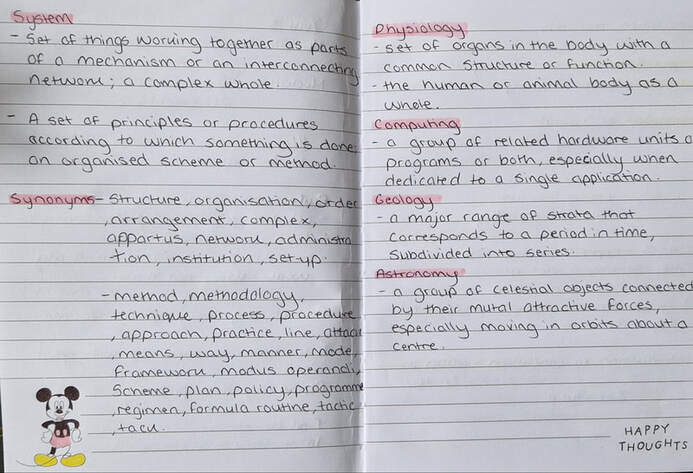 System
- Set of things working together as parts
of a mechanism or an interconnecting
network; a complex whole.
- A set of principles or procedures
according to which something is done;
an organised scheme or method.
Synonyms - Structure, organisation, order
, arrangement, complex,
appartus, network, administra
tion, institution, set-up.
- method, methodology,
technique, process, procedure
, approach, practice, line, attack
, means, way, manner, mode,
framework, modus operandi,
Scheme, plan, policy, programme
, regimen, formula routine, tactic
, tack.
Physiology
- set of organs in the body with a
common structure or function.
- the human or animal body as a
whole.
Computing
- a group of related hardware units o
programs or both, especially when
dedicated to a single application.
Geology
- a major range of strata that
corresponds to a period in time,
subdivided into series.
Astronomy
- a group of celestial objects connected
by their mutal attractive forces,
especially moving in orbits about a
centre.
HAPPY
THOUGHTS